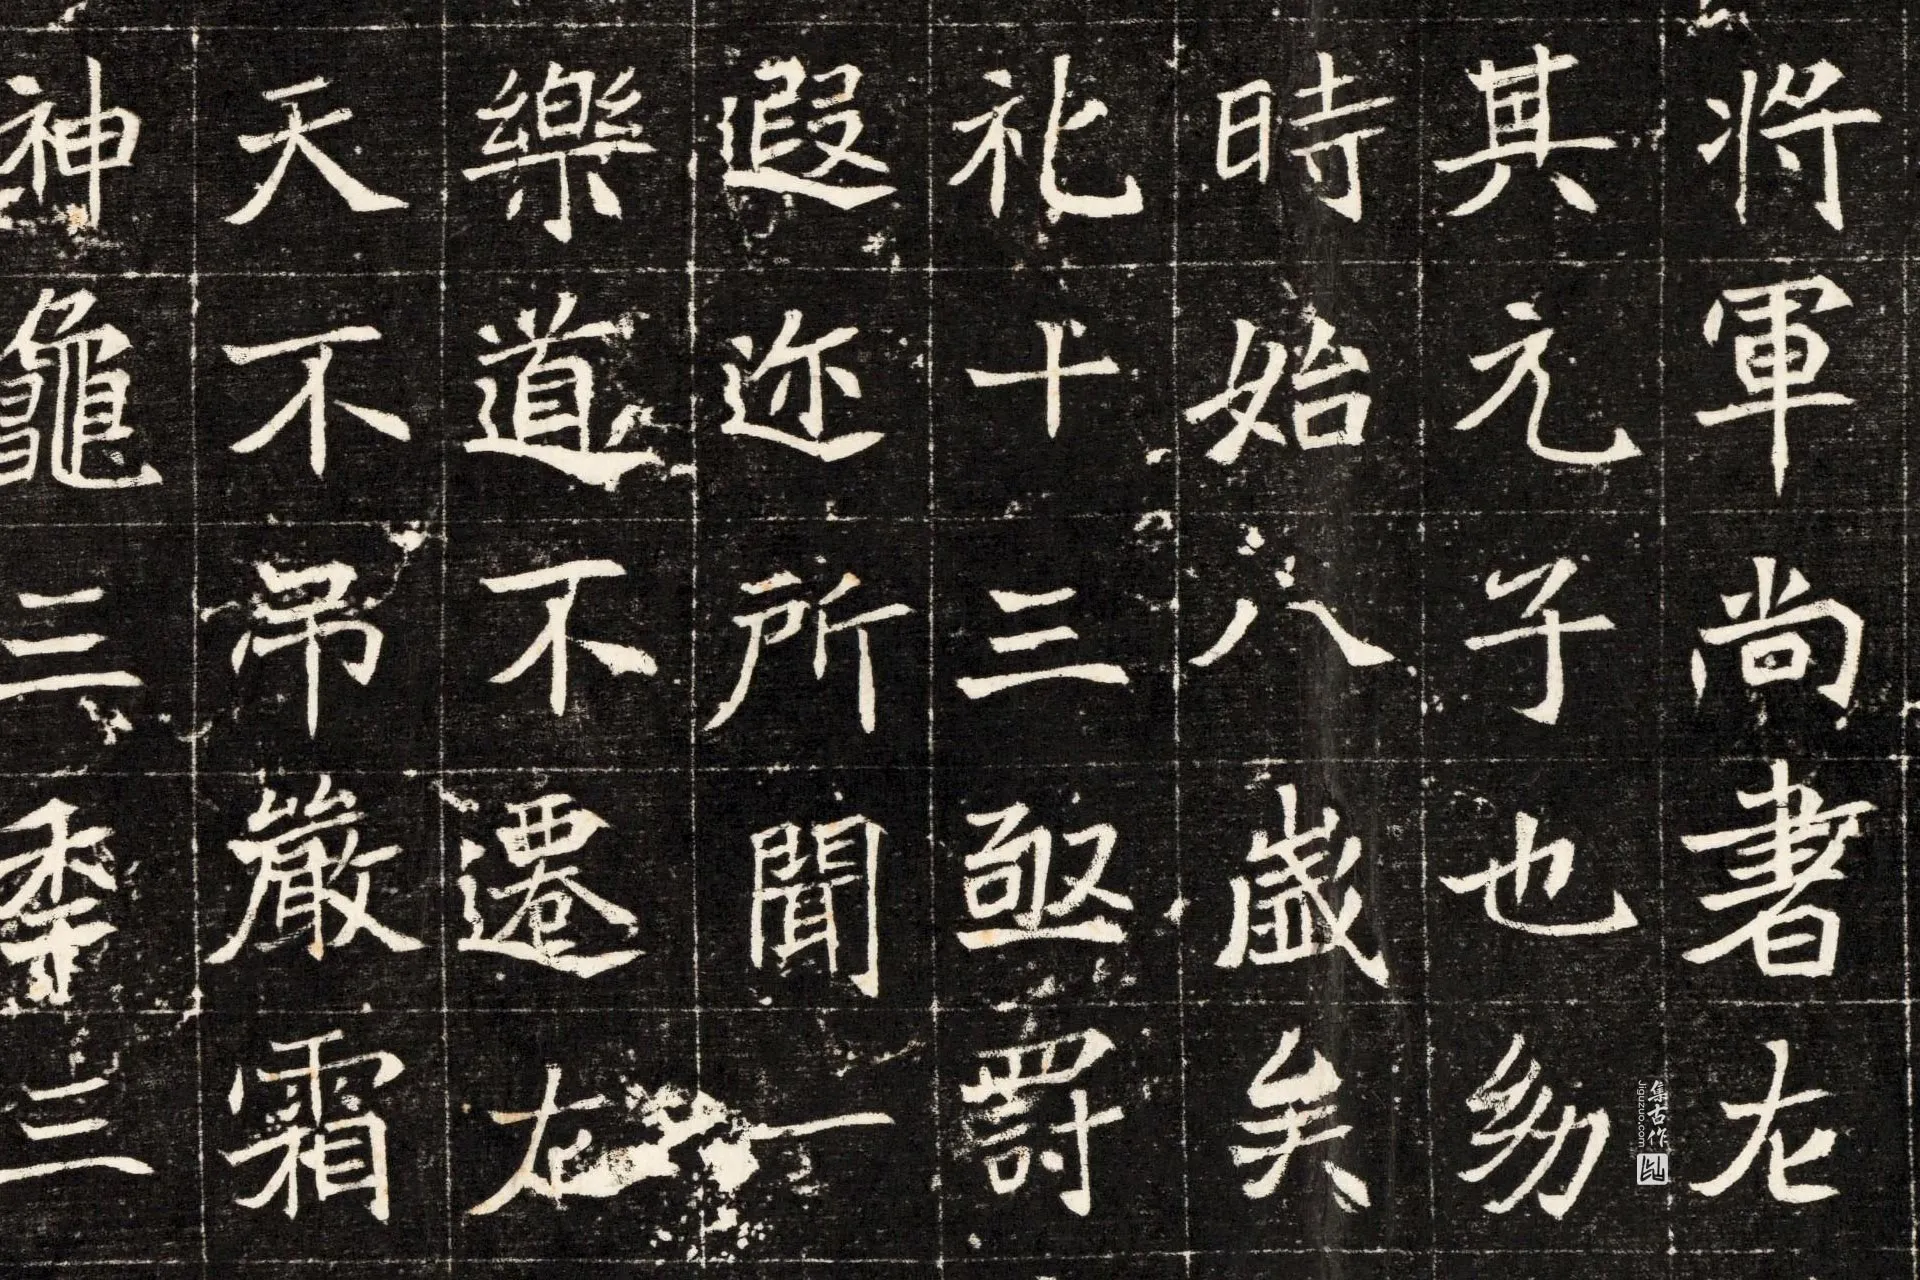 将軍尚書左
其元子也幼
時始八歲矣
礼十三亟罸
遐迩所聞一
樂道不遷左
天不吊嚴霜
神龜三季三
集古作
Jiguzuo.com